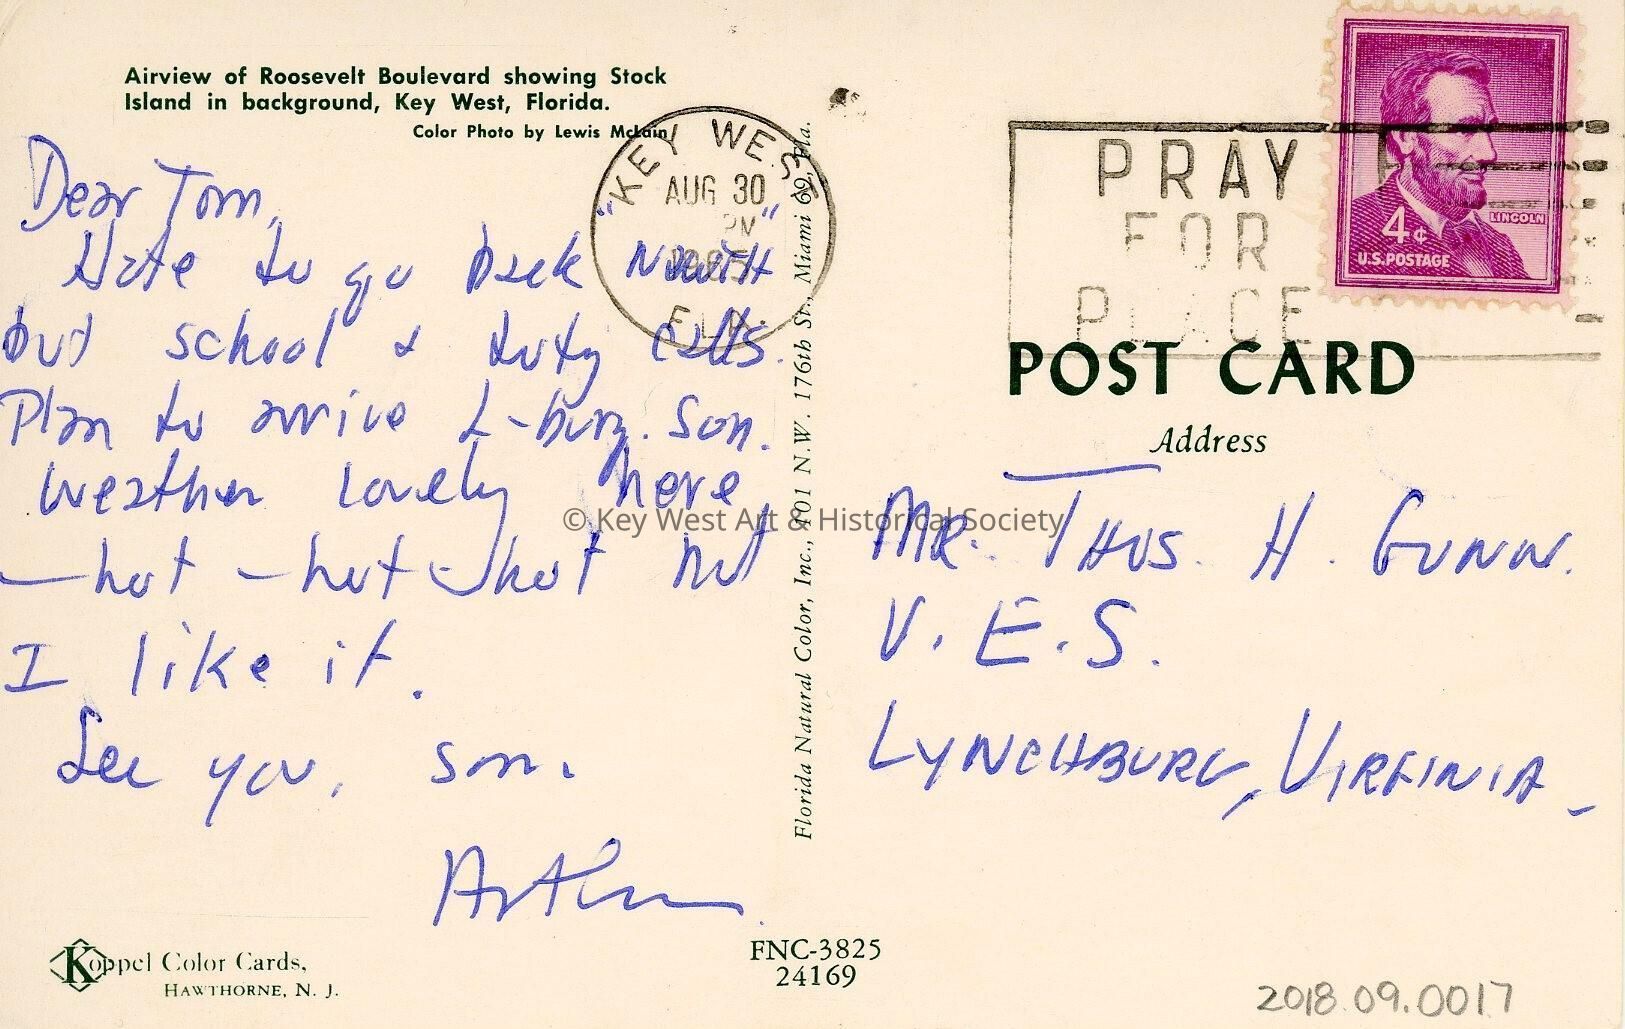 Airview of Roosevelt Boulevard showing Stock
Island in background, Key West, Florida.
Color Photo by Lewis McLain
Dear Tom,
Hate to go back "North"
but school & duty calls.
Plan to arrive L-burg. Son.
Weather lovely here
— hot – hot – hot but
I like it.
See you, son.
Arthur
Koppel Color Cards,
HAWTHORNE, N. J.
KEY WEST
AUG 30
PM
FLA.
Florida Natural Color, Inc., 101 N.W. 176th St., Miami 69, Fla.
FNC-3825
24169
PRAY
FOR
PEACE
4¢
LINCOLN
U.S. POSTAGE
POST CARD
Address
MR. THOS. H. GUNN.
V.E.S.
LYNCHBURG, VIRGINIA
© Key West Art & Historical Society
2018.09.0017